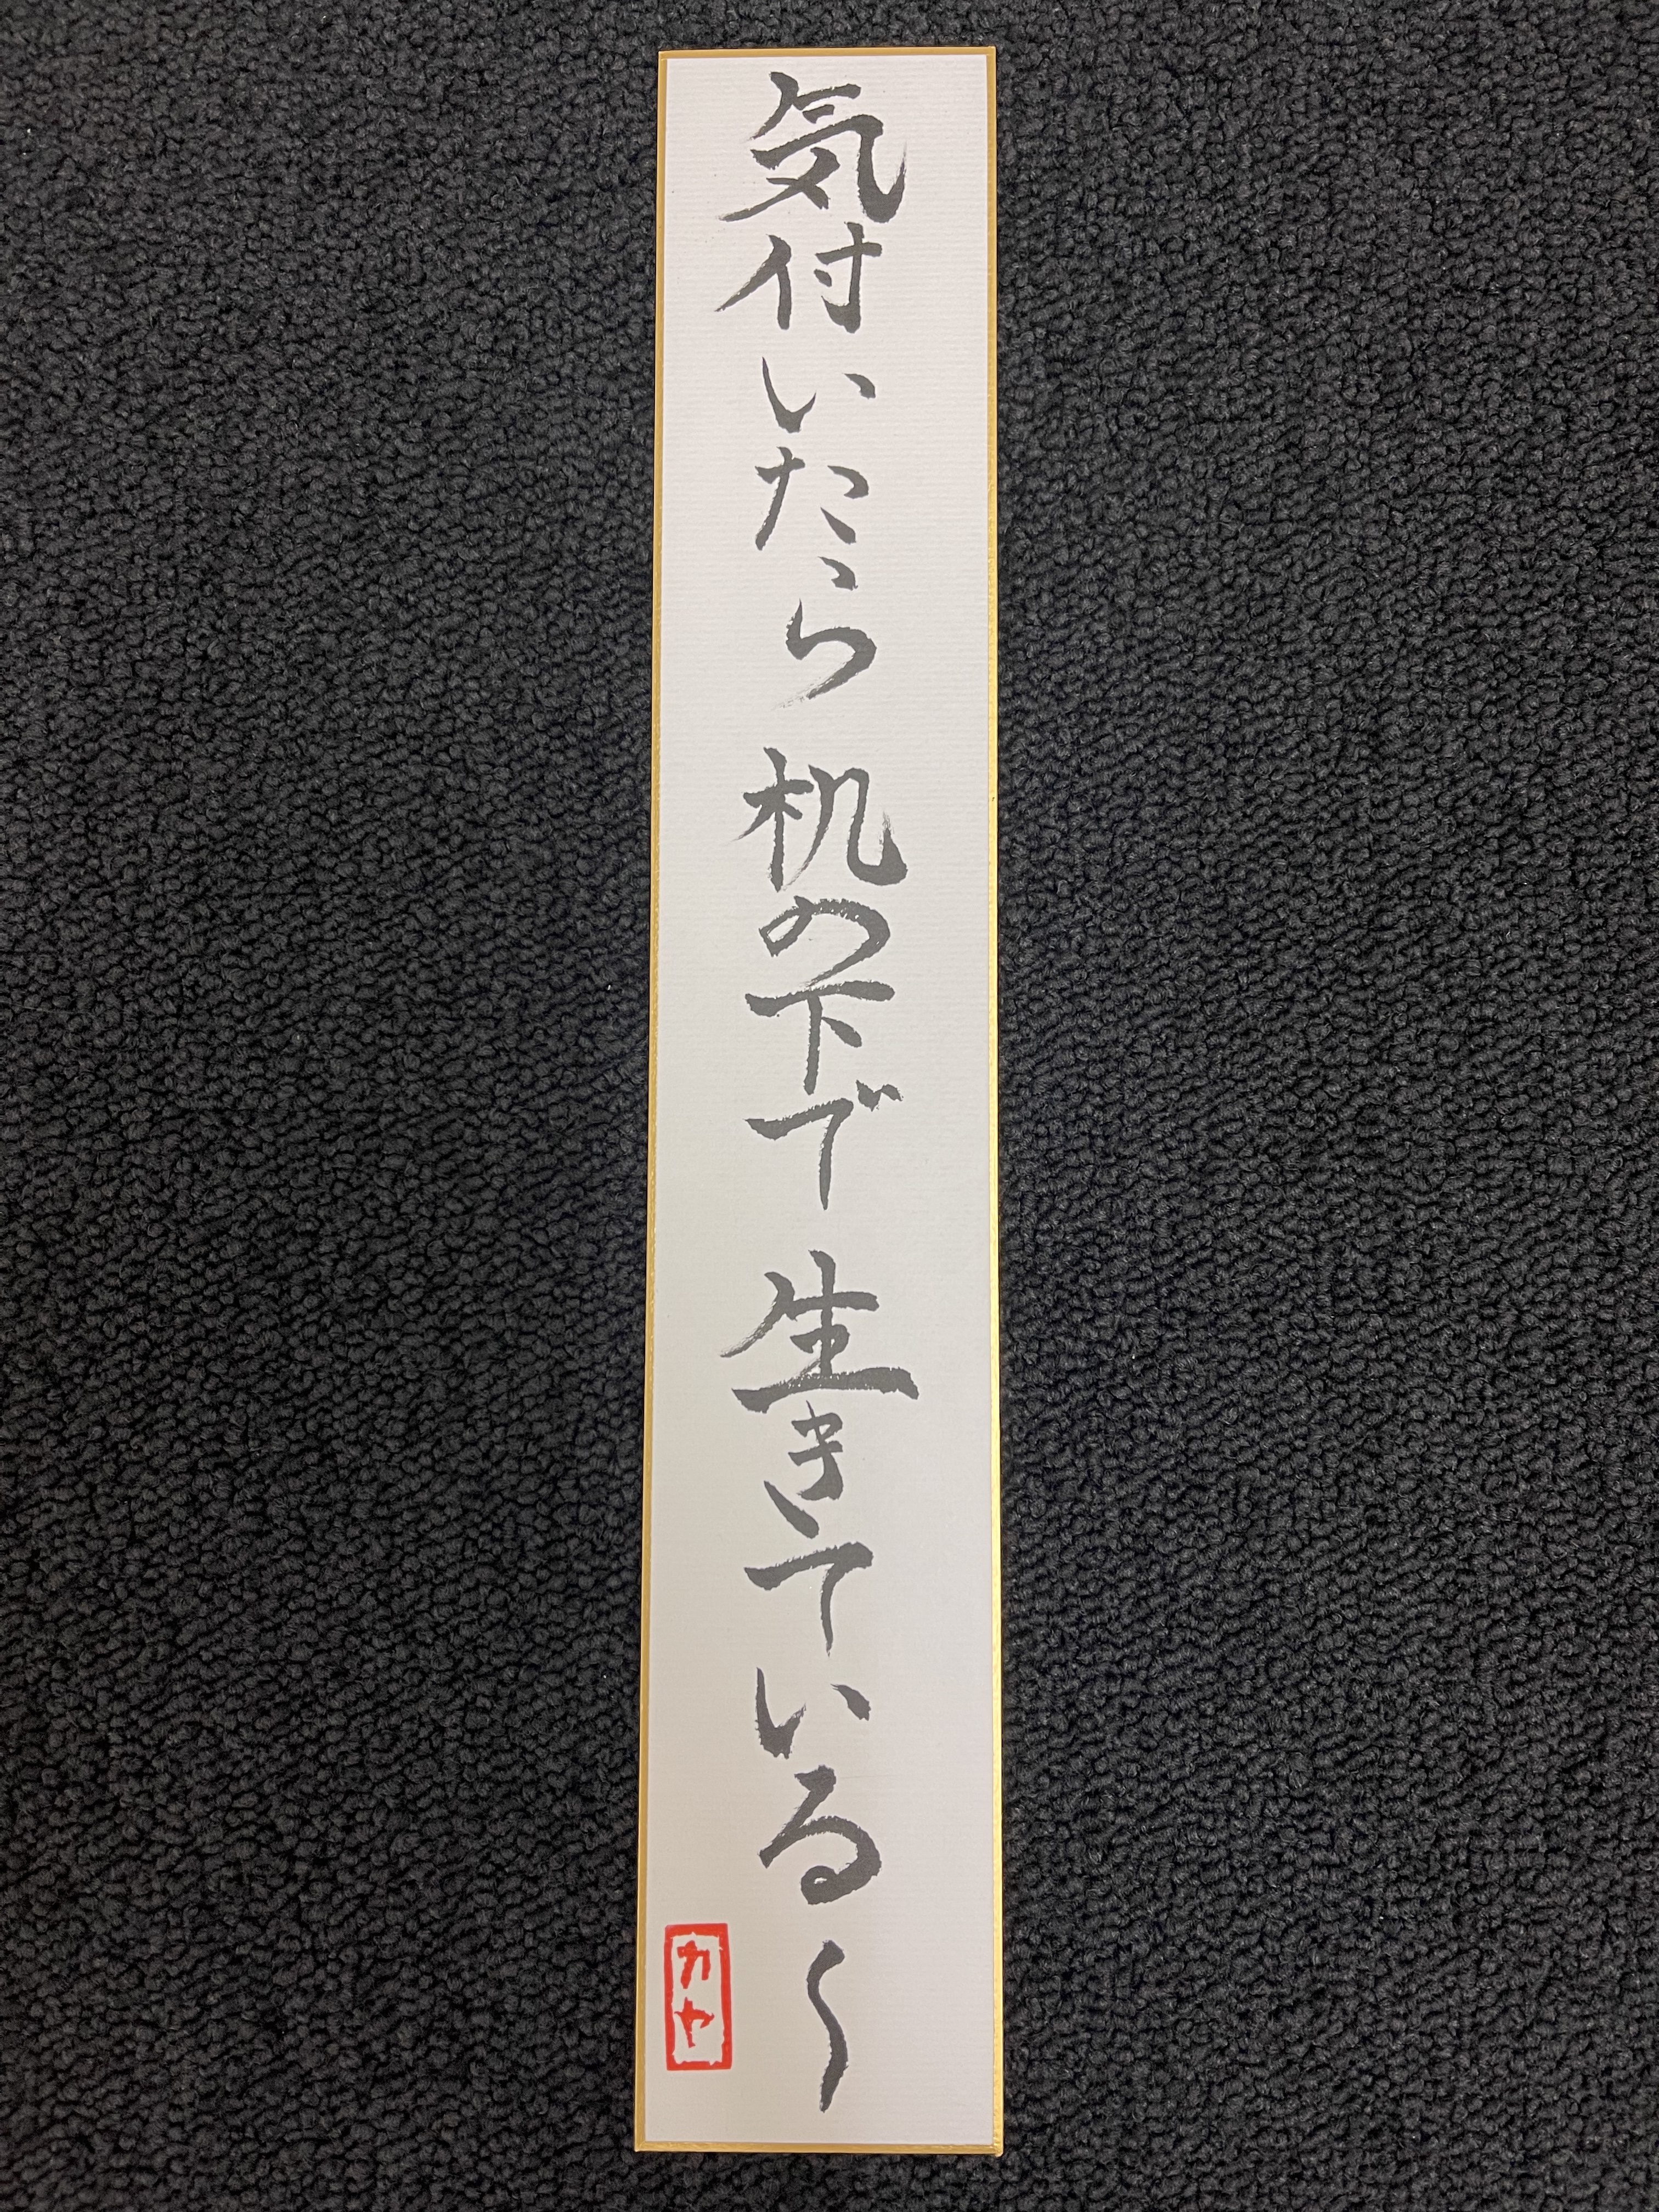 気付いたら 机の下で 生きている〜
カヤ